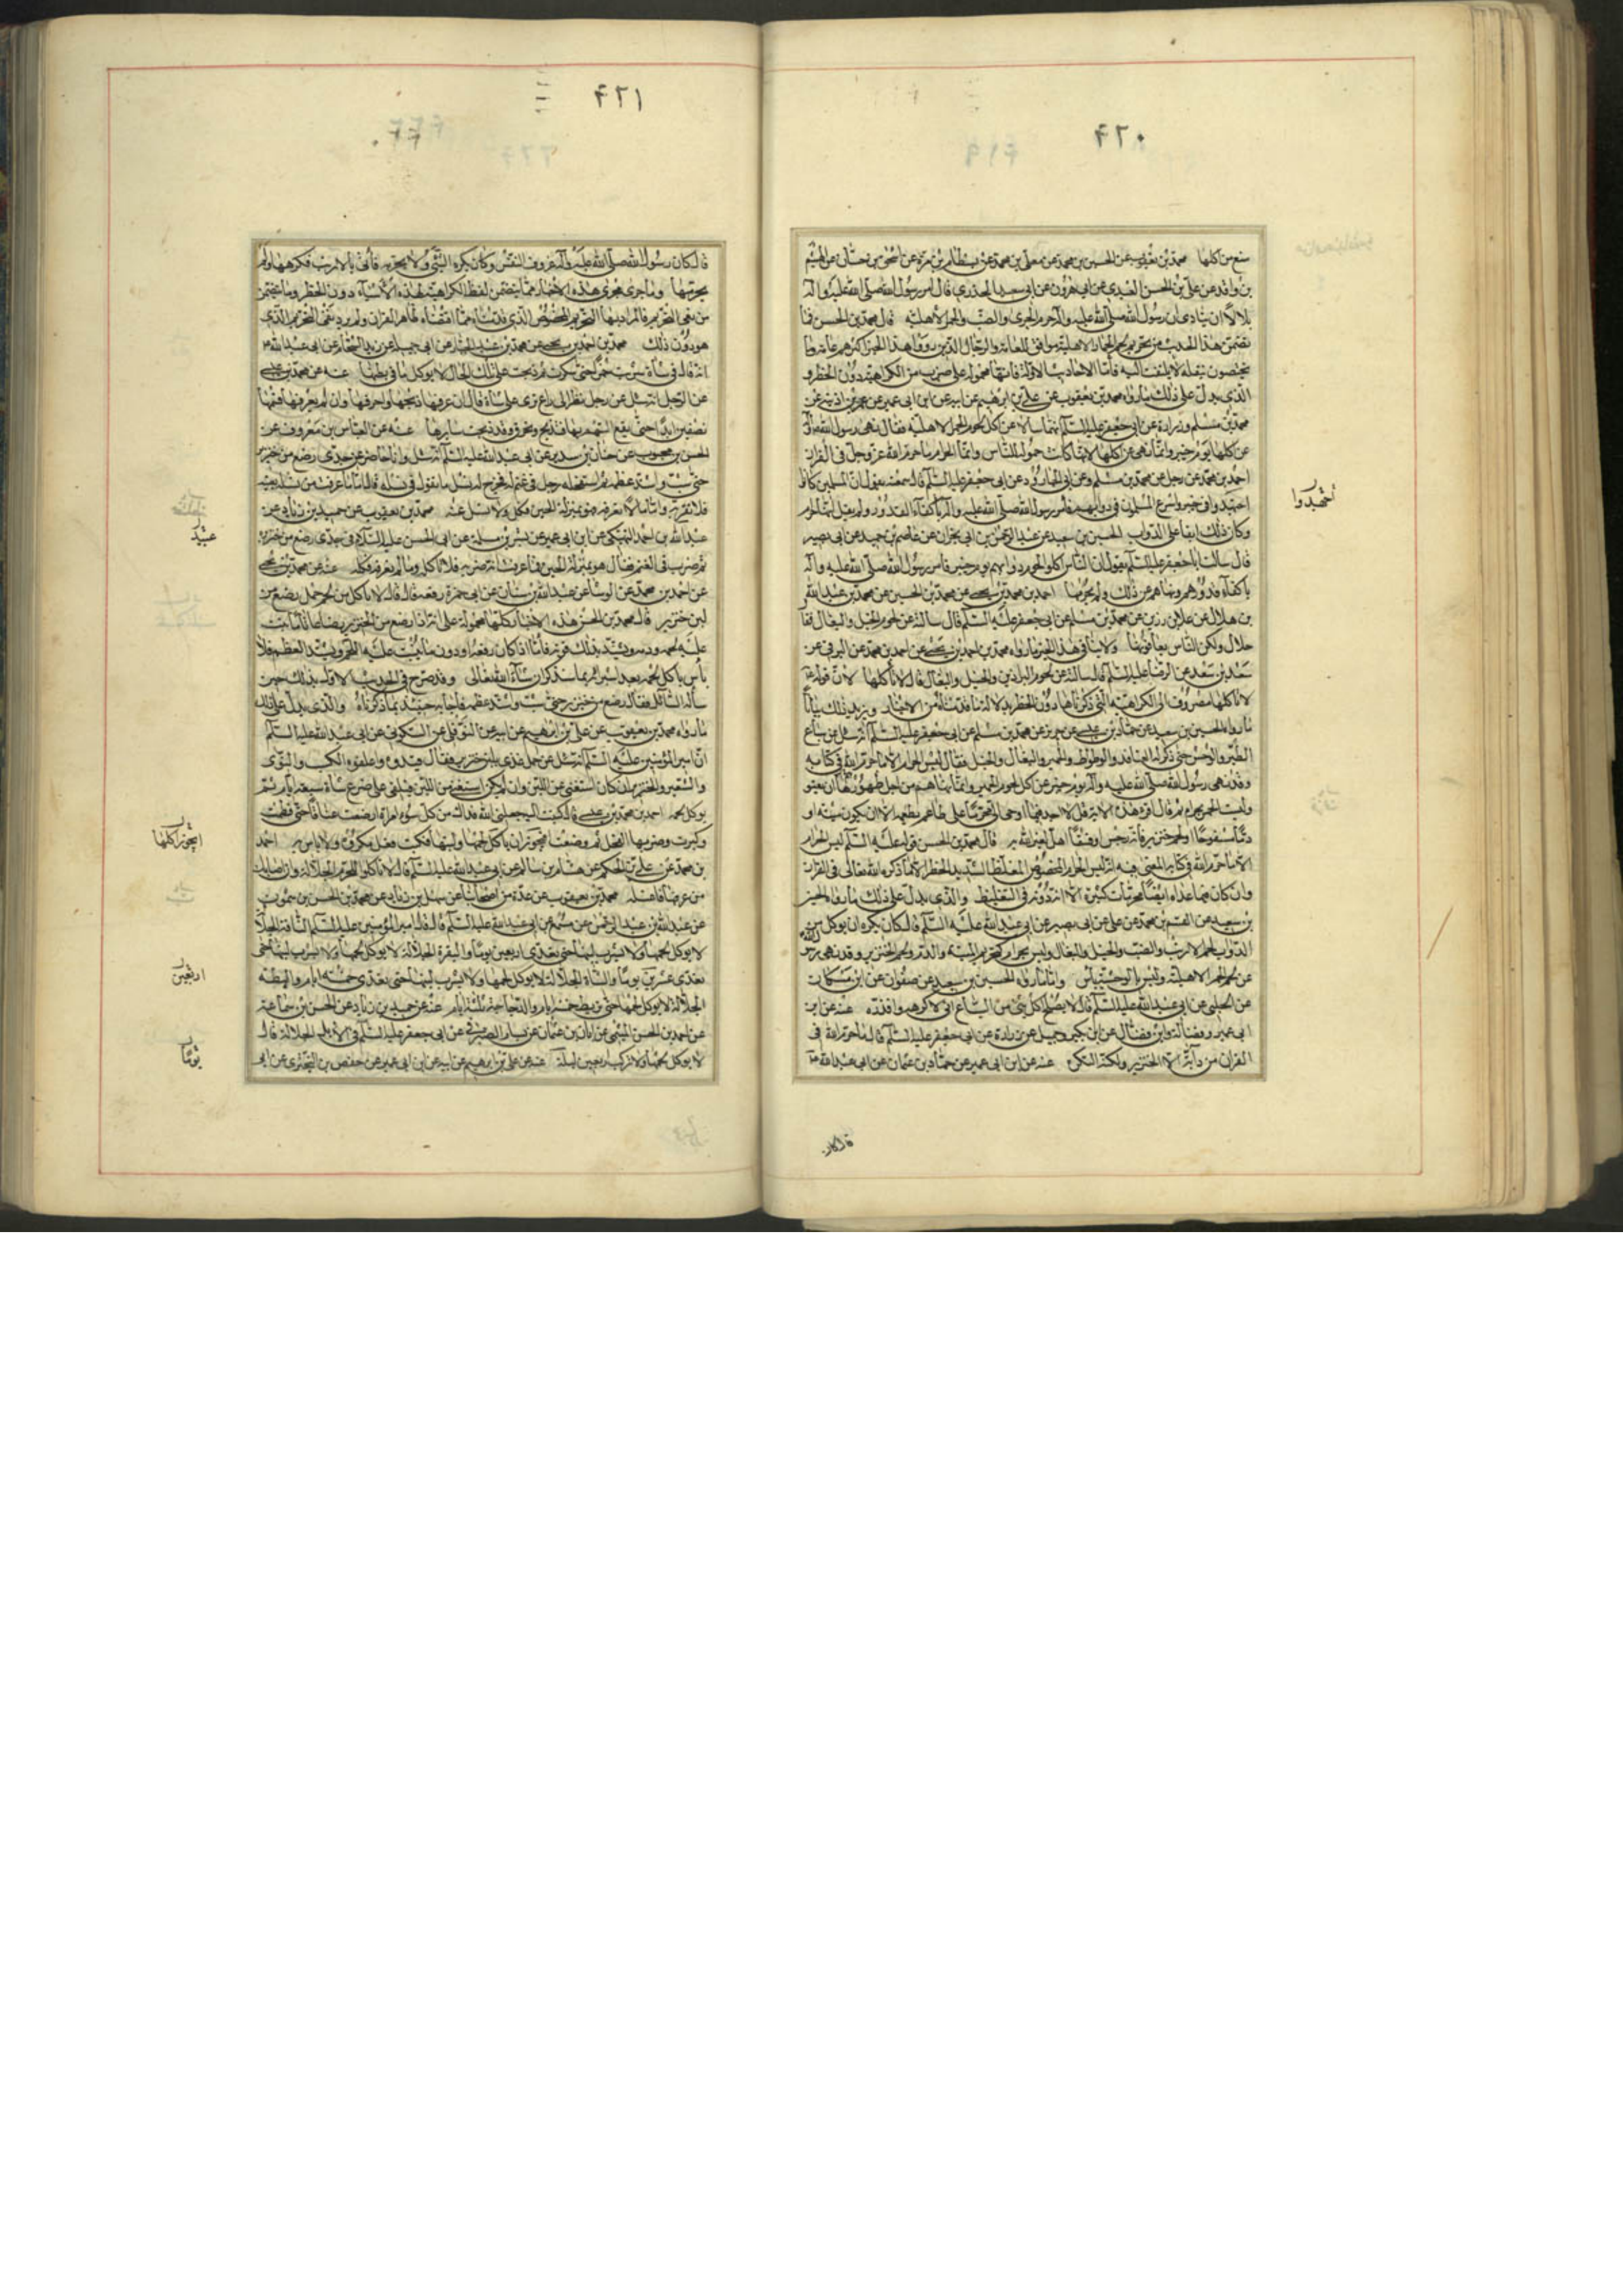 ٤٦٠
منع من اكلها محمد بن يعقوب عن الحسين بن محمد عن معلى بن محمد عن بسطام بن مرة عن اسحق بن حسان عن الهيثم
بن واقد عن علي بن الحسن العبدي عن ابي هرون عن ابي سعيد الخدري قال امر رسول الله صلى الله عليه واله
بلالا ان ينادى ان رسول الله صلى الله عليه واله حرم الجرى والضب والحمر الاهلية قال محمد بن الحسن فما
تضمن هذا الحديث من تحريم لحم الحمار الاهلية موافق للعامة والرجال الذين رووا هذا الخبر اكثرهم عامة وما
يختصون بنقله لا يلتفت اليه فاما الاحاديث الاولة فانها محمولة على ضرب من الكراهية دون الحظر و
الذي يدل على ذلك ما رواه محمد بن يعقوب عن علي بن ابرهيم عن ابيه عن ابن ابي عمير عن عمر بن اذينة عن
محمد بن مسلم وزرارة عن ابي جعفر عليه السلم انهما سالاه عن اكل لحوم الحمر الاهلية فقال نهى رسول الله
عن اكلها يوم خيبر وانما نهى عن اكلها لانها كانت حمولة للناس وانما الحرام ما حرم الله عز وجل في القران
احمد بن محمد عن رجل عن محمد بن مسلم وعن ابي الجارود عن ابي جعفر عليه السلم قال سمعته يقول ان المسلمين كانوا
اجهدوا في خيبر واسرع المسلمون في دوابهم فامر رسول الله صلى الله عليه واله باكفاء القدور ولم يقل انها حرام
وكان ذلك ابقاء على الدواب الحسين بن سعيد عن عبد الرحمن بن ابي نجران عن عاصم بن حميد عن ابي بصير
قال سالت ابا جعفر عليه السلم يقول ان الناس اكلوا لحوم دوابهم يوم خيبر فامر رسول الله صلى الله عليه واله
باكفاء قدورهم ونهاهم عن ذلك ولم يحرمها احمد بن محمد بن يحيى عن محمد بن الحسين عن محمد بن عبد الله
بن هلال عن علا بن رزين عن محمد بن مسلم عن ابي جعفر عليه السلم قال سالته عن لحوم الخيل والبغال فقا
حلال ولكن الناس يعافونها ولا ينافي هذا الخبر ما رواه محمد بن احمد بن يحيى عن احمد بن محمد عن البرقي عن
سعد بن سعد عن الرضا عليه السلم قال سالته عن لحوم البراذين والخيل والبغال قال لا تاكلها لان قوله
لا تاكلها مصروف الى الكراهية التي ذكرناها دون الحظر بدلالة ما قدمناه من الاخبار ويزيد ذلك بيانا
ما رواه الحسين بن سعيد عن حماد بن عيسى عن حريز عن محمد بن مسلم عن ابي جعفر عليه السلم انه سئل عن سباع
الطير والوحش حتى ذكر له القنافذ والوطواط والحمير والبغال والخيل فقال ليس الحرام الا ما حرم الله في كتابه
وقد نهى رسول الله صلى الله عليه واله يوم خيبر عن اكل لحوم الحمير وانما نهاهم من اجل ظهورهم ان يفنو
وليست الحمر بحرام ثم قال اقرء هذه الاية قل لا اجد فيما اوحى الى محرما على طاعم يطعمه الا ان يكون ميتة او
دما مسفوحا او لحم خنزير فانه رجس او فسقا اهل لغير الله به قال محمد بن الحسن قوله عليه السلم ليس الحرام
الا ما حرم الله في كتابه المعنى فيه انه ليس الحرام المخصوص المغلظ الشديد الحظر الا ما ذكره الله تعالى في القران
وان كان فيما عداه ايضا محرمات كثيرة الا انه دونه في التغليظ والذي يدل على ذلك ما رواه الحسين
بن سعيد عن القسم بن محمد عن علي عن ابي بصير عن ابي عبد الله عليه السلم قال كان يكره ان يوكل من
الدواب لحم الارنب والضب والخيل والبغال وليس بحرام كتحريم الميتة والدم ولحم الخنزير وقد نهى رسول الله
عن لحوم الحمر الاهلية وليس بالوحشية باس واما ما رواه الحسين بن سعيد عن صفوان عن ابن مسكان
عن الحلبي عن ابي عبد الله عليه السلم قال لا يصلح اكل شئ من السباع اني لاكرهه واقذره عنه عن ابن
ابي عمير وفضالة وابن فضال عن ابن بكير وجميل عن زرارة عن ابي جعفر عليه السلم قال ما حرم الله في
القران من دابة الا الخنزير ولكنه النكرة عنه عن ابن ابي عمير عن حماد بن عثمان عن ابي عبد الله ع
قال كان
٤٦١
قال كان رسول الله صلى الله عليه واله عزوف النفس وكان يكره الشئ ولا يحرمه فاتى بالارنب فكرهها ولم
يحرمها وما جرى مجرى هذه الاخبار مما يتضمن لفظ الكراهية لهذه الاشياء دون الحظر وما يتضمن
من نفى التحريم فالمراد بها التحريم المخصوص الذي قدمناه مما اقتضاه ظاهر القران ولم يرد نفى التحريم الذي
هو دون ذلك محمد بن احمد بن يحيى عن محمد بن عبد الجبار عن ابي جميلة عن زيد الشحام عن ابي عبد الله ع
انه قال في شاة شربت خمرا حتى سكرت ثم ذبحت على تلك الحال لا يوكل ما في بطنها عنه عن محمد بن عيسى
عن الرجل انه سئل عن رجل نظر الى راع نزى على شاة قال ان عرفها ذبحها واحرقها وان لم يعرفها قسمها
نصفين ابدا حتى يقع السهم بها فتذبح وتحرق وقد نجت سايرها عنه عن العباس بن معروف عن
الحسن بن محبوب عن حنان بن سدير عن ابي عبد الله عليه السلم انه سئل وانا حاضر عن جدى رضع من خنزيرة
حتى شب واشتد عظمه ثم استفحله رجل في غنمه فخرج له نسل ما تقول في نسله قال اما ما عرفت من نسله بعينه
فلا تقربه واما ما لم تعرفه فهو بمنزلة الجبن فكل ولا تسئل عنه محمد بن يعقوب عن حميد بن زياد عن
عبد الله بن احمد النهيكي عن ابن ابي عمير عن بشر بن مسلمة عن ابي الحسن عليه السلام في جدى رضع من خنزيرة
ثم ضرب في الغنم فقال هو بمنزلة الجبن فما عرفت انه ضربه فلا تاكله وما لم تعرفه فكله عنه عن محمد بن يحيى
عن احمد بن محمد عن الوشا عن عبد الله بن سنان عن ابي حمزة رفعه قال قال لا تاكل من لحم حمل رضع من
لبن خنزير قال محمد بن الحسن هذه الاخبار كلها محمولة على انه اذا رضع من الخنزير رضاعا تاما نبت
عليه لحمه ودمه ويشتد بذلك قوته فاما اذا كان دفعة او دون ما ينبت عليه اللحم ويشد العظم فلا
باس باكل لحمه بعد استبرائه بما سنذكره ان شاء الله تعالى وقد صرح في الحديث الاول بذلك حين
ساله السائل فقال رضع من خنزيرة حتى شب واشتد عظمه فاجابه حينئذ بما ذكرناه والذي يدل على ذلك
ما رواه محمد بن يعقوب عن علي بن ابرهيم عن ابيه عن النوفلي عن السكوني عن ابي عبد الله عليه السلم
ان امير المؤمنين عليه السلم سئل عن حمل غذى بلبن خنزيرة فقال قيدوه واعلفوه الكسب والنوى
والشعير والخبز ان كان استغنى عن اللبن وان لم يكن استغنى من اللبن فيلقى على ضرع شاة سبعة ايام ثم
يوكل لحمه احمد بن محمد بن عيسى قال كتبت اليه جعلني الله فداك من كل سوء امراة ارضعت عناقا حتى فطمت
وكبرت وضربها الفحل ثم وضعت افيجوز ان ياكل لحمها ولبنها فكتب فعل مكروه ولا باس به احمد
بن محمد عن علي بن الحكم عن هشام بن سالم عن ابي عبد الله عليه السلم قال لا تاكلوا اللحوم الجلالة وان اصابك
من عرقها فاغسله محمد بن يعقوب عن عدة من اصحابنا عن سهل بن زياد عن محمد بن الحسن بن شمون
عن عبد الله بن عبد الرحمن عن مسمع عن ابي عبد الله عليه السلم قال قال امير المؤمنين عليه السلم الناقة الجلالة
لا يوكل لحمها ولا يشرب لبنها حتى يغذى اربعين يوما والبقرة الجلالة لا يوكل لحمها ولا يشرب لبنها حتى
يغذى عشرين يوما والشاة الجلالة لا يوكل لحمها ولا يشرب لبنها حتى يغذى خمسة ايام والبطة
الجلالة لا يوكل لحمها حتى تربط خمسة ايام والدجاجة ثلثة ايام عنه عن حميد بن زياد عن الحسن بن سماعة
عن احمد بن الحسن الميثمي عن ابان بن عثمان عن بسام الصيرفي عن ابي جعفر عليه السلم في الابل الجلالة قال
لا يوكل لحمها ولا تركب اربعين ليلة عنه عن علي بن ابرهيم عن ابيه عن ابن ابي عمير عن حفص بن البختري عن ابي
عبيد
ايجوز اكلها
اربعين
يوما